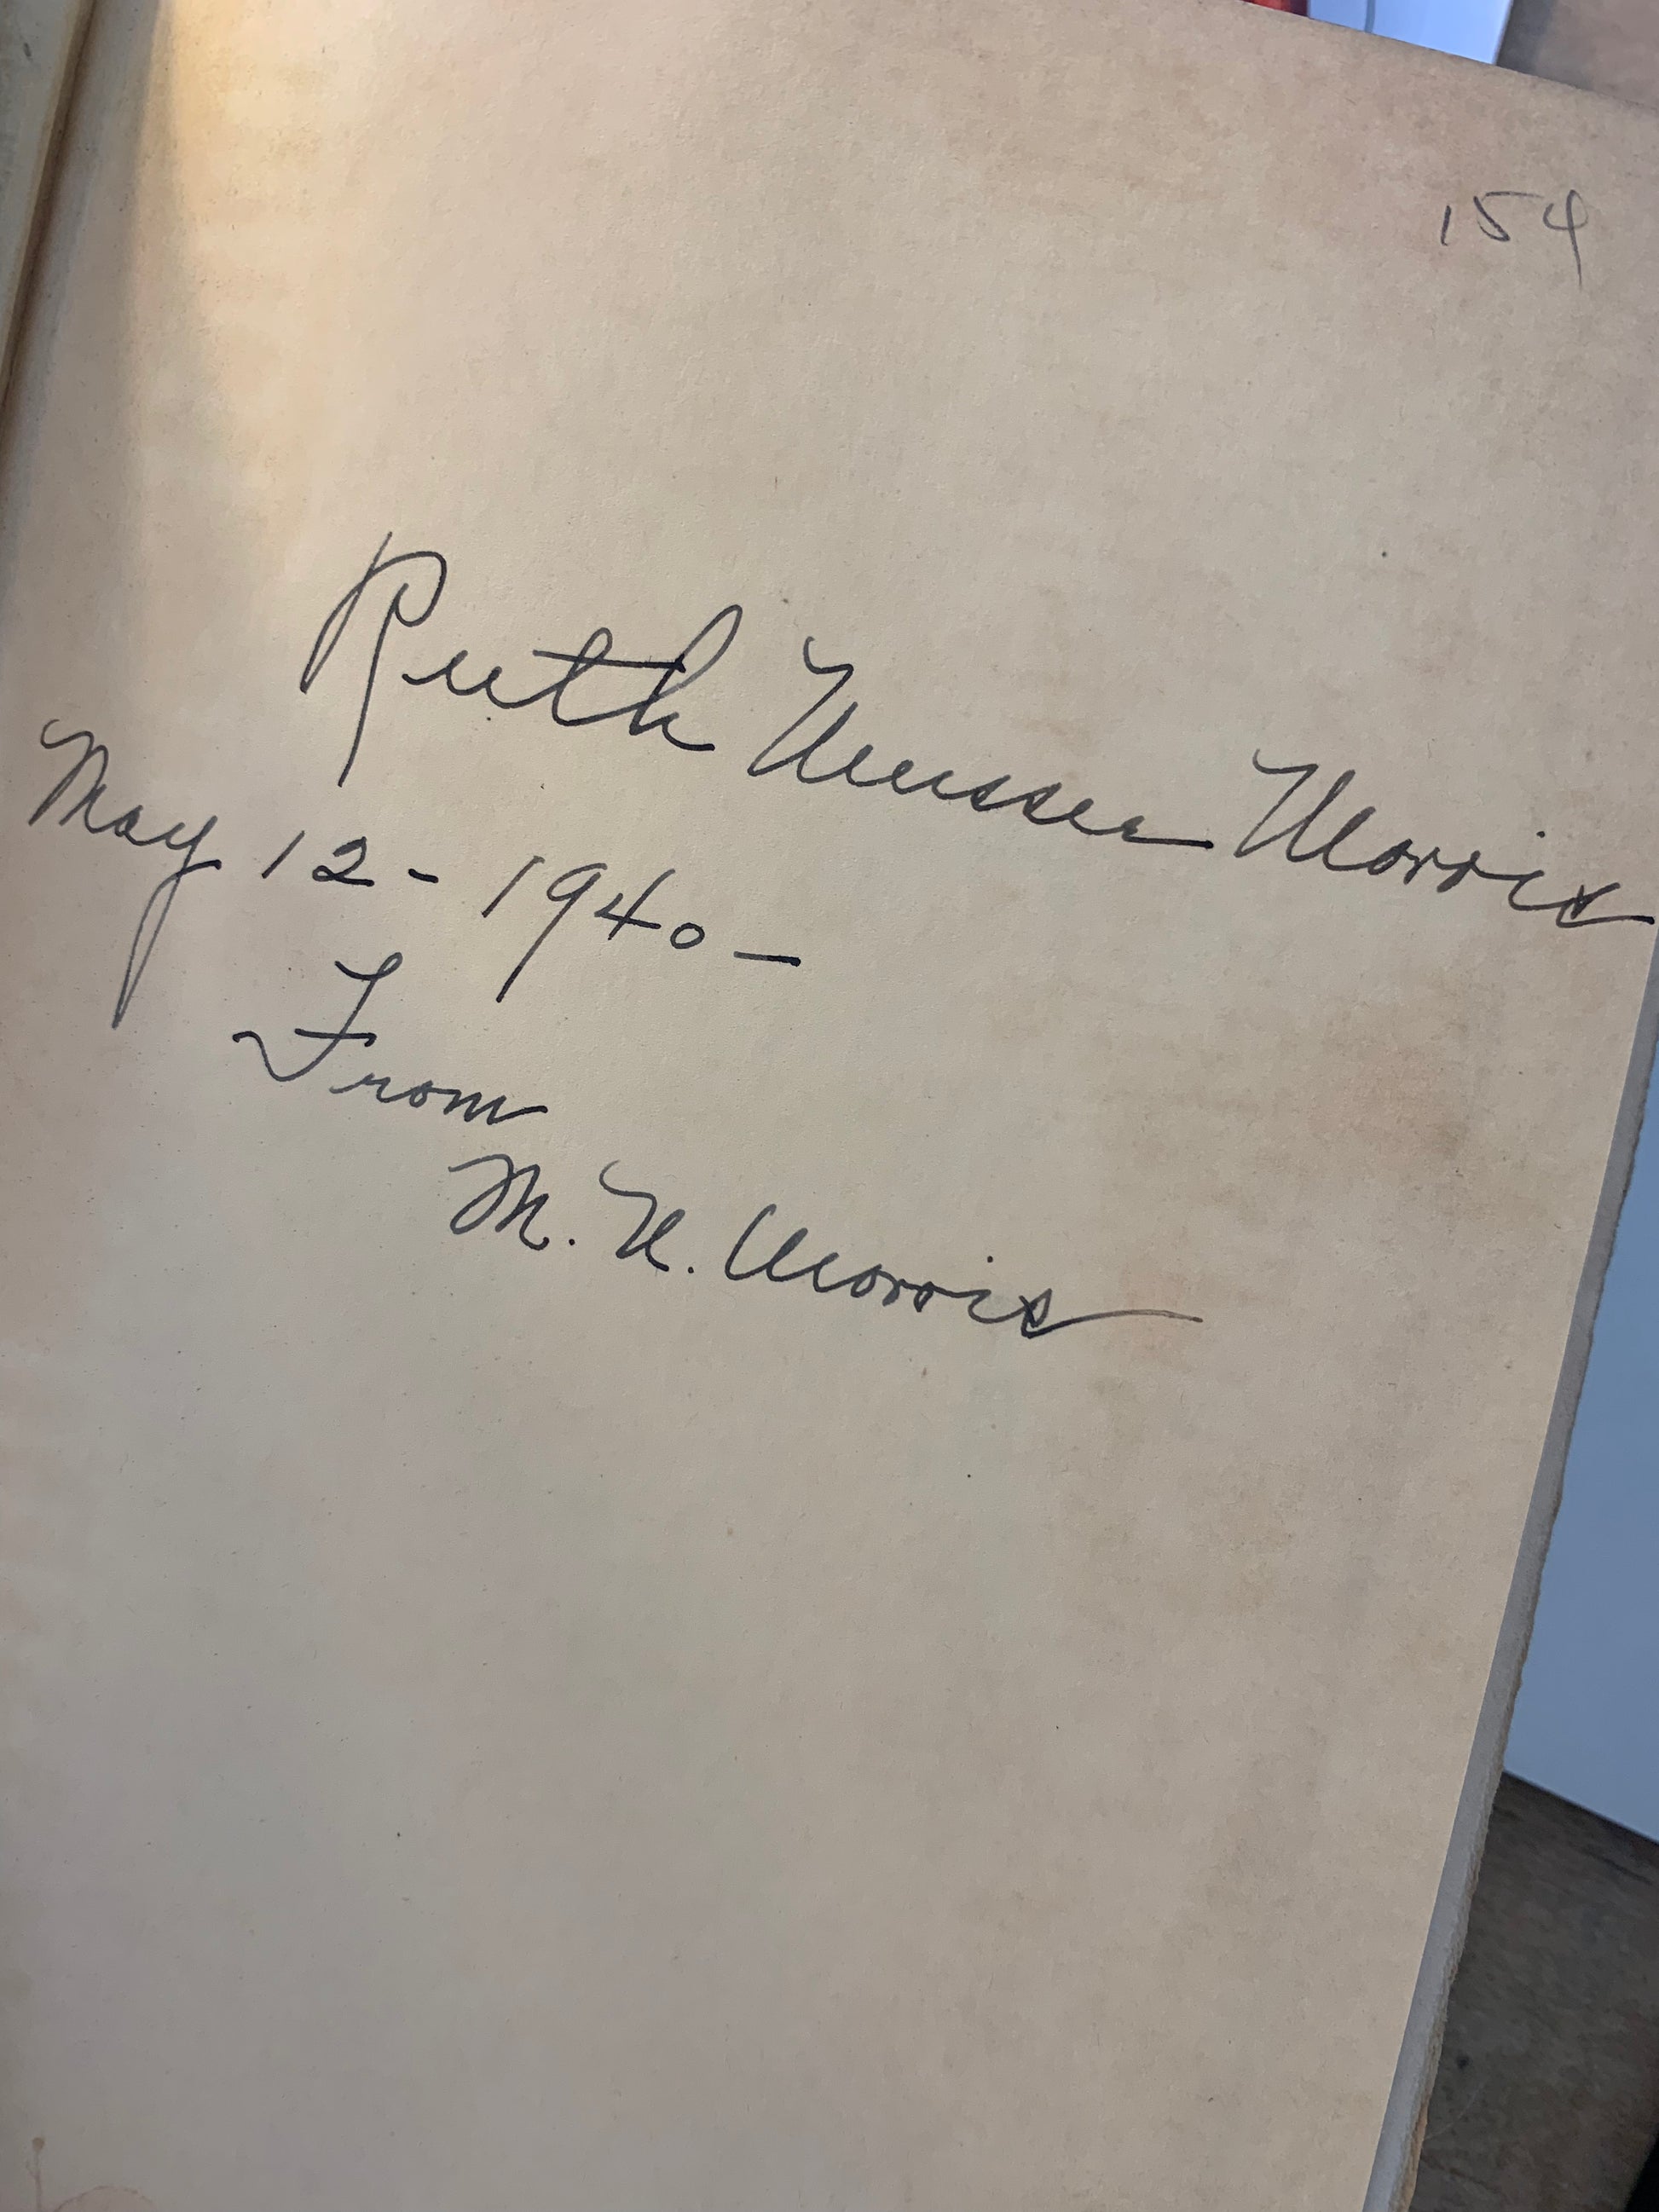 154
Ruth Musser Morris
May 12 - 1940 -
From
M. N. Morris